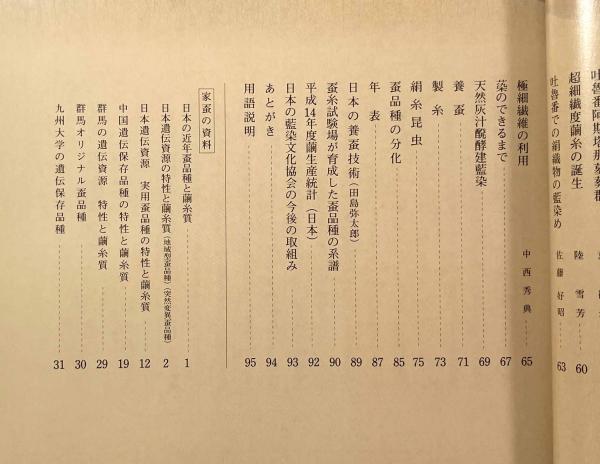 吐魯番阿斯塔那墓群
超細繊度繭糸の誕生 陸 雪芳 60
吐魯番での絹織物の藍染め 佐藤好昭 63
極細繊維の利用 中西秀典 65
蒅のできるまで 67
天然灰汁醗酵建藍染 69
養蚕 71
製糸 73
絹糸昆虫 75
蚕品種の分化 85
年表 87
日本の養蚕技術(田島弥太郎) 89
蚕糸試験場が育成した蚕品種の系譜 90
平成14年度繭生産統計(日本) 92
日本の藍染文化協会の今後の取組み 93
あとがき 94
用語説明 95
家蚕の資料
日本の近年蚕品種と繭糸質 1
日本遺伝資源の特性と繭糸質(地域型蚕品種)(突然変異蚕品種) 2
日本遺伝資源 実用蚕品種の特性と繭糸質 12
中国遺伝保存品種の特性と繭糸質 19
群馬の遺伝資源 特性と繭糸質 29
群馬オリジナル蚕品種 30
九州大学の遺伝保存品種 31